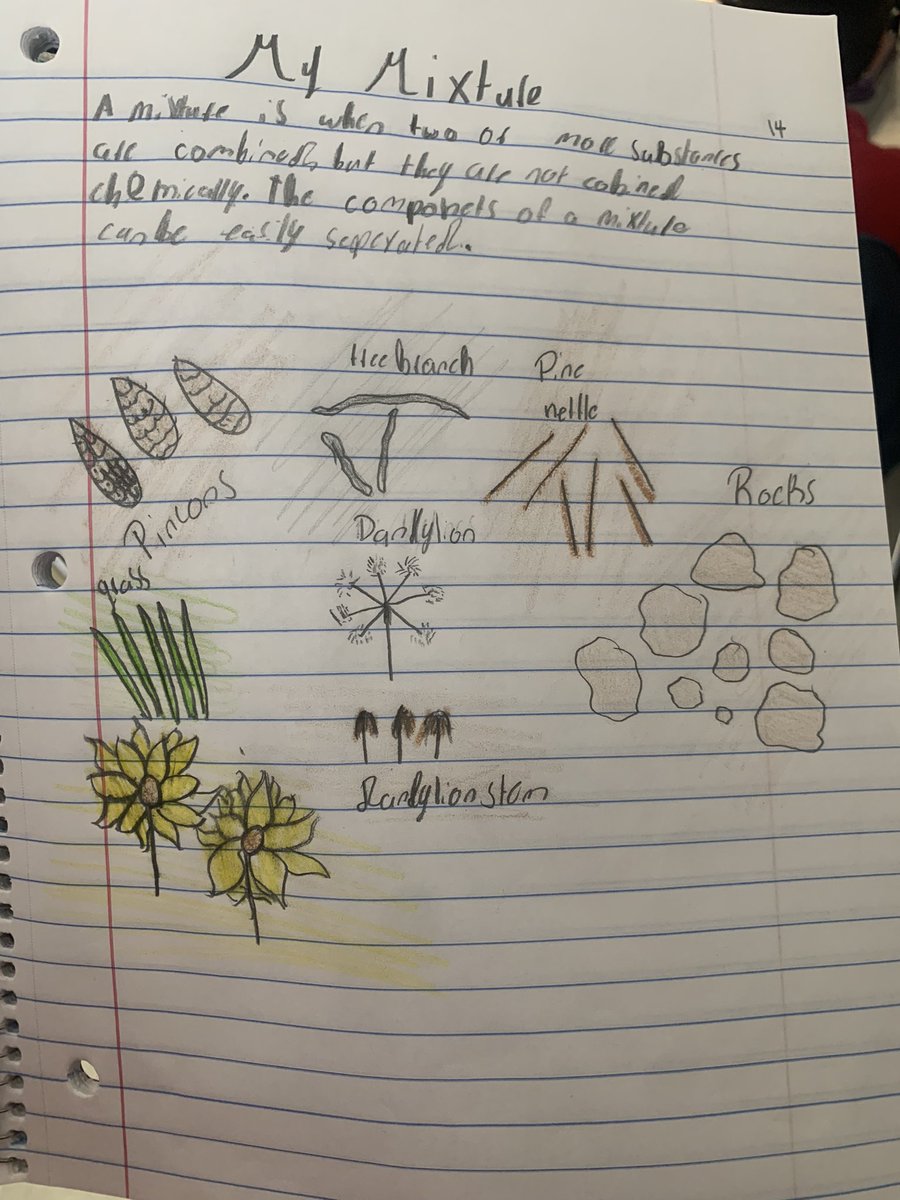 My Mixture
14
A mixture is when two or more substances
are combined, but they are not cobined
chemically. The componets of a mixture
can be easily seperated.
tree branch
Pine
nettle
Pincons
Rocks
Dandylion
grass
Dandylion stem